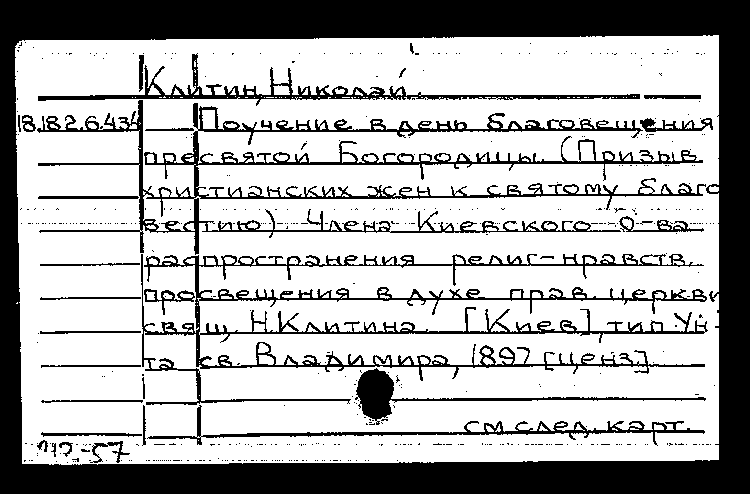 Клитин, Николай.
18.182.6.434 Поучение в день благовещения
пресвятой Богородицы. (Призыв
христианских жен к святому благо
вестию) Члена Киевского о-ва
распространения религ-нравств.
просвещения в духе прав. церкви
свящ. Н.Клитина. [Киев], тип. Ун-
та св. Владимира, 1897 [ценз].
см. след. карт.
-57